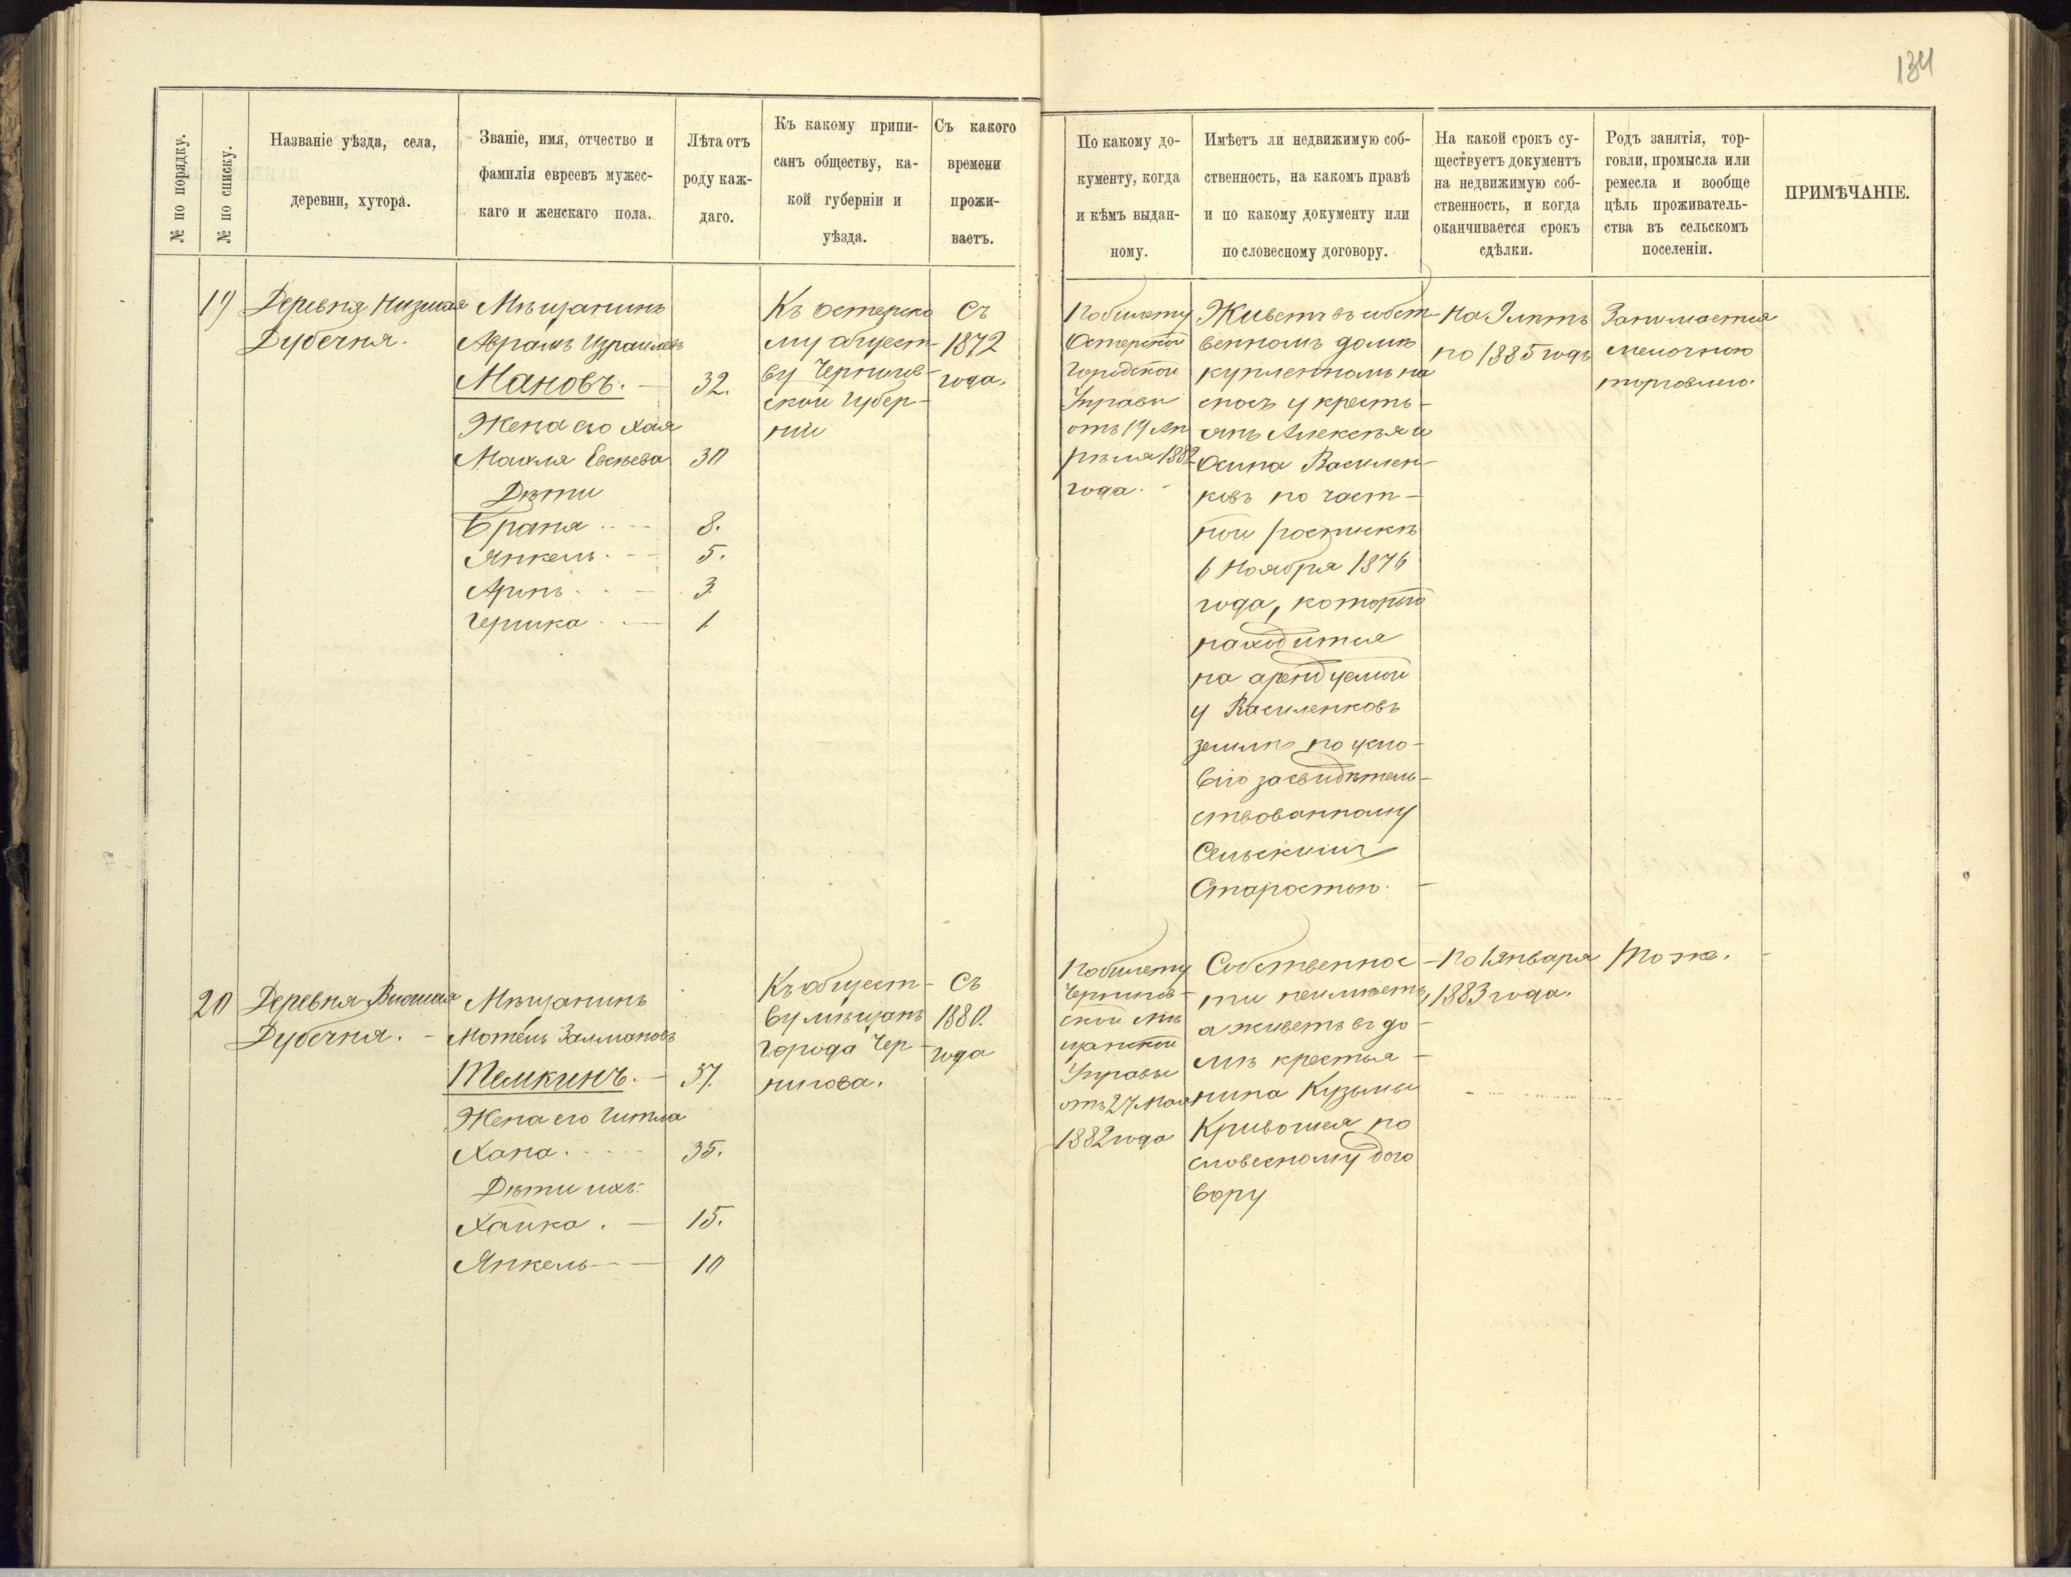 134
№ по порядку.
№ по списку.
Названіе уѣзда, села,
деревни, хутора.
Званіе, имя, отчество и
фамилія евреевъ мужес-
каго и женскаго пола.
Лѣта отъ
роду каж-
даго.
Къ какому припи-
санъ обществу, ка-
кой губерніи и
уѣзда.
Съ какого
времени
прожи-
ваетъ.
По какому до-
кументу, когда
и кѣмъ выдан-
ному.
Имѣетъ ли недвижимую соб-
ственность, на какомъ правѣ
и по какому документу или
по словесному договору.
На какой срокъ су-
ществуетъ документъ
на недвижимую соб-
ственность, и когда
оканчивается срокъ
сдѣлки.
Родъ занятія, тор-
говли, промысла или
ремесла и вообще
цѣль проживатель-
ства въ сельскомъ
поселеніи.
ПРИМѢЧАНІЕ.
19
Деревня Низшая
Дубечня.
Мѣщанинъ
Аврамъ Израилевъ
Мановъ. — 32.
Жена его Хая
Маиля Евсѣева 30
Дѣти
Брапя 8.
Янкель. 5.
Аронъ 3
Гершка 1
Къ Остерско
му общест-
ву Чернигов-
ской Губер-
ніи
Съ
1872
года.
По билету
Остерской
Городской
Управы
отъ 19 Ап
рѣля 1882
года.
Живетъ въ собст-
венномъ домѣ
купленномъ на
сносъ у кресть-
янъ Алексѣя и
Осипа Василен-
ковъ по част-
ной роспискѣ
6 Ноября 1876
года, который
находится
на арендуемой
у Василенковъ
землѣ по усло-
вію засвидѣтель-
ствованному
Сельскимъ
Старостою.
На 9 лѣтъ
по 1885 годъ
Занимается
мелочною
торговлею.
20
Деревня Вышшая
Дубечня.
Мѣщанинъ
Мотель Залмановъ
Темкинъ. — 37.
Жена его Гитля
Хана 35.
Дѣти ихъ:
Хайка. — 15.
Янкель — 10
Къ общест-
ву мѣщанъ
города Чер-
нигова.
Съ
1880.
года
По билету
Чернигов-
ской Мѣ
щанской
Управы
отъ 27 Мая
1882 года
Собственнос-
ти неимѣетъ,
а живетъ въ до-
мѣ крестья-
нина Кузьмы
Кривошея по
словесному дого
вору
По 1 Января
1883 года.
Тоже.